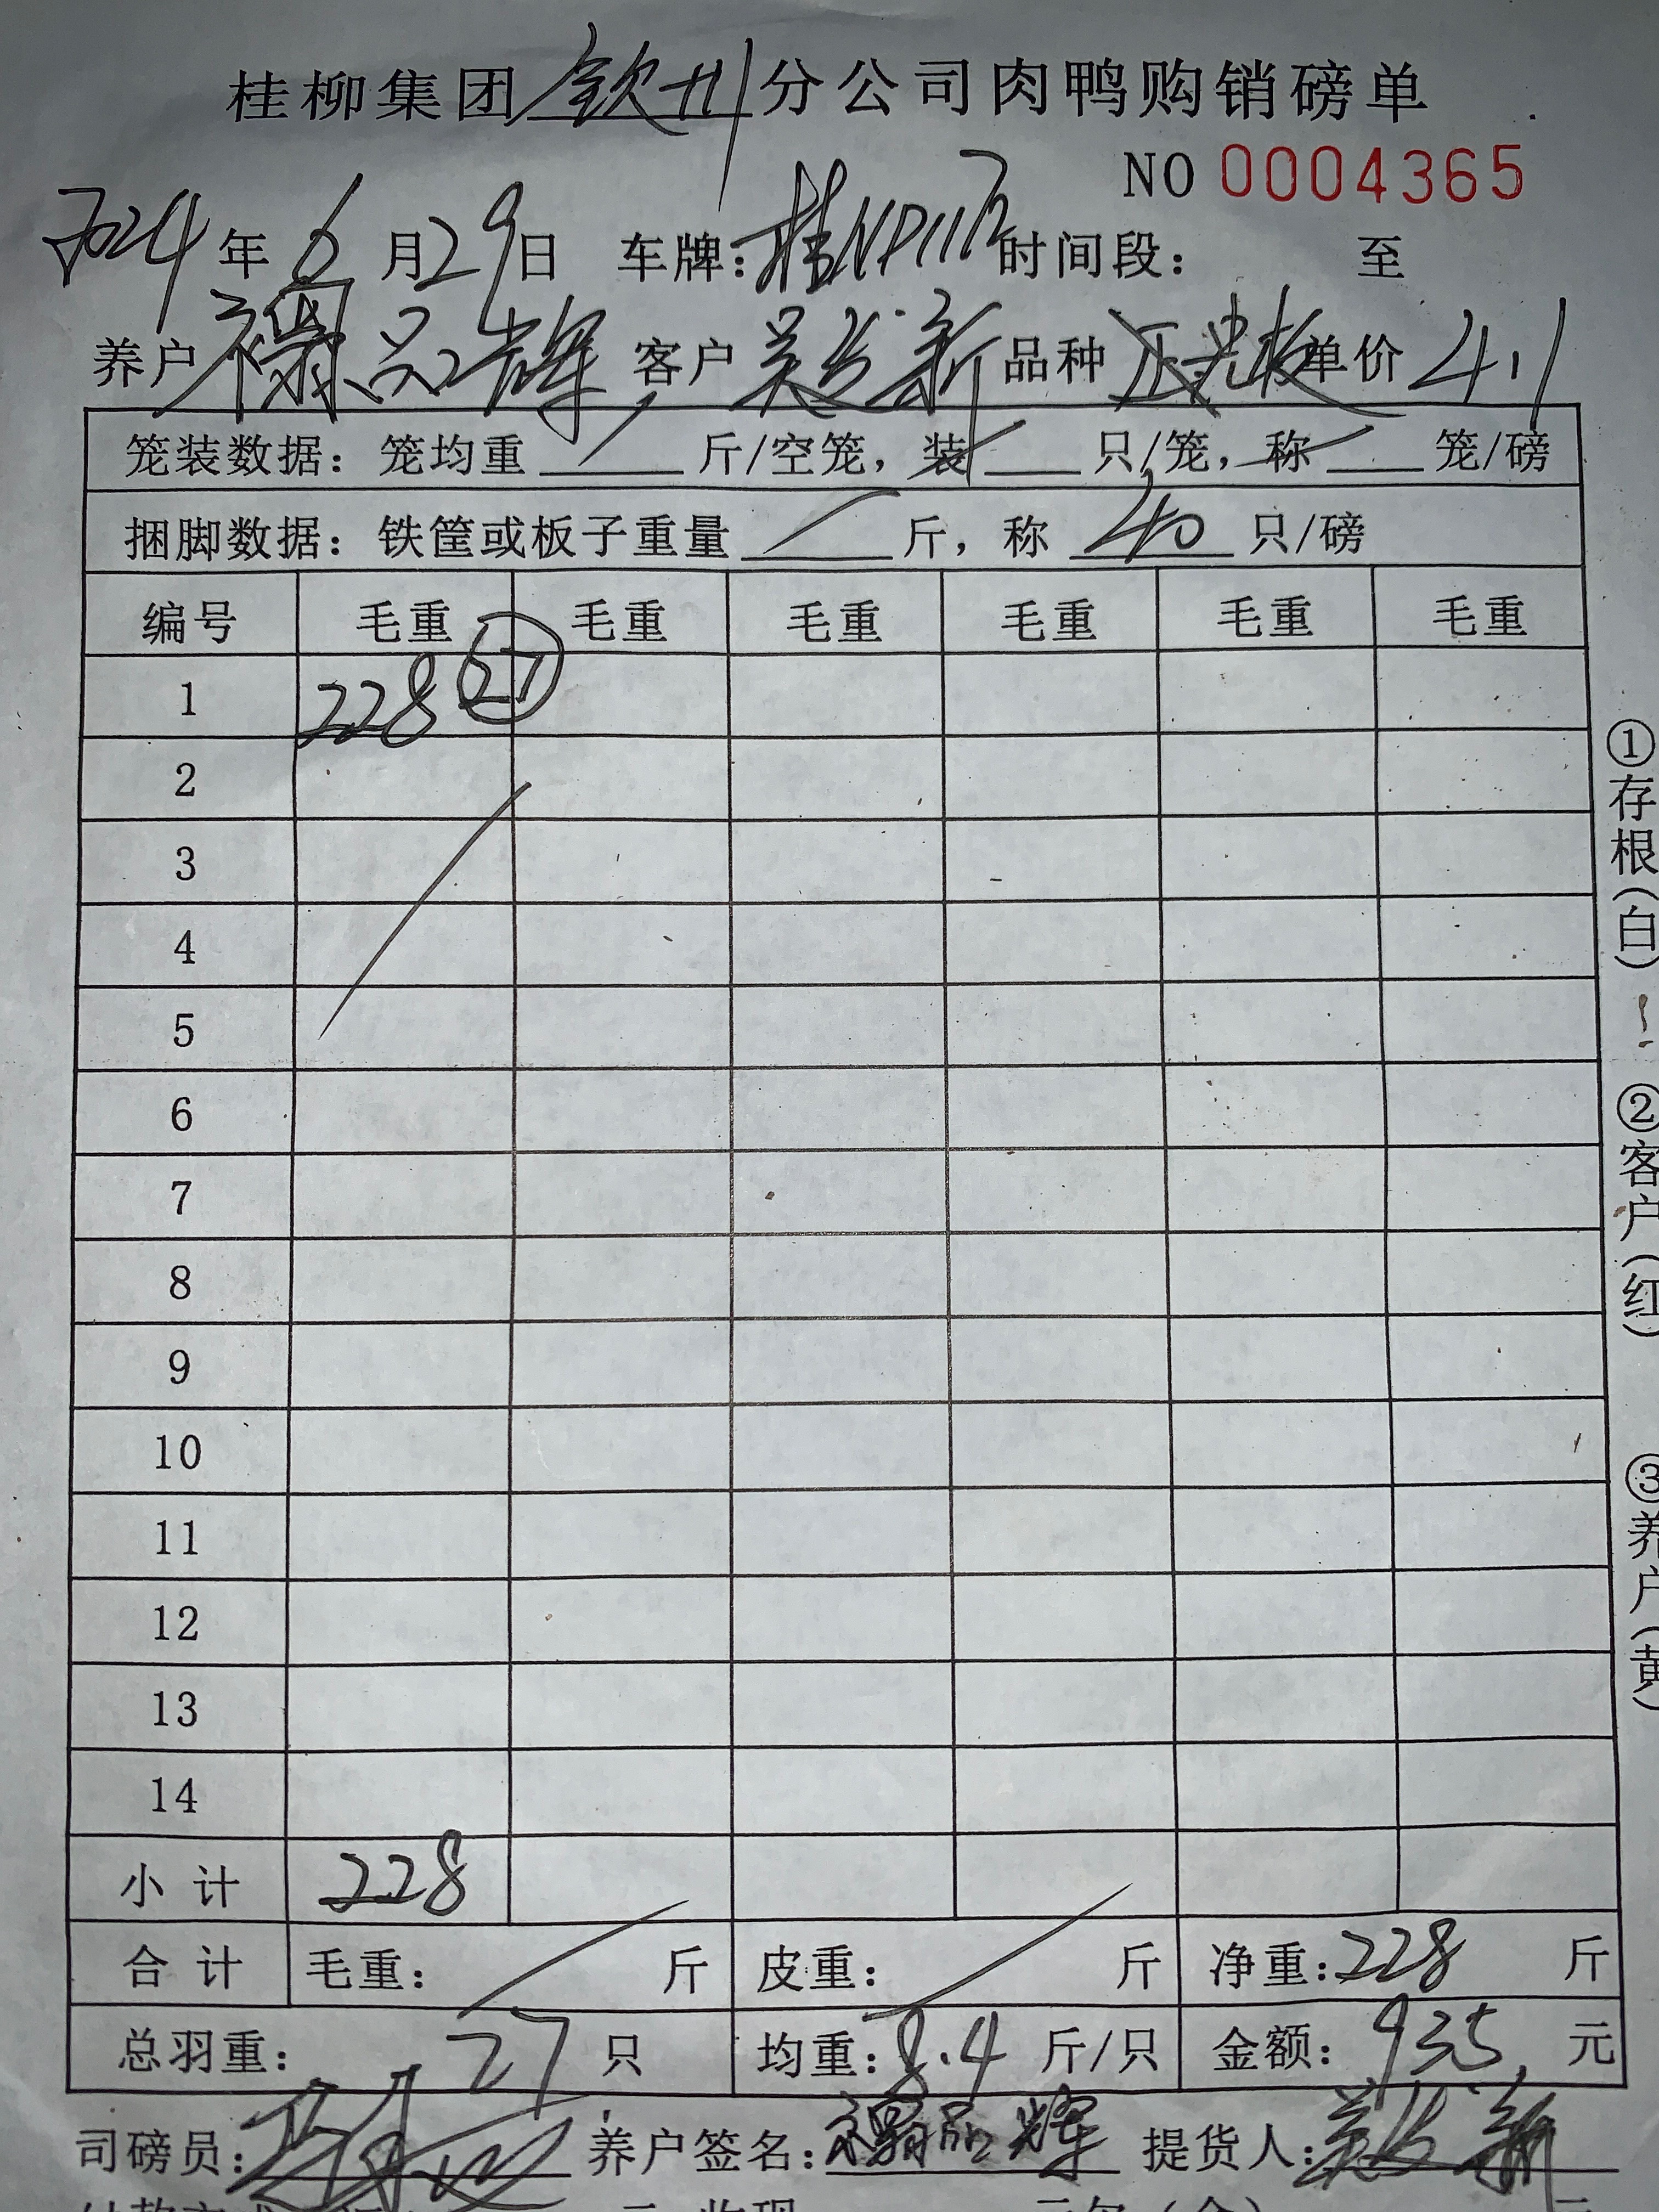 桂柳集团钦州分公司肉鸭购销磅单
NO 0004365
2024年6月29日 车牌:桂NP1172时间段: 至
养户 品辉 客户 吴发新 品种 单价 4.1
笼装数据: 笼均重 / 斤/空笼, 装 / 只/笼, 称 / 笼/磅
捆脚数据: 铁筐或板子重量 / 斤, 称 40 只/磅
编号 毛重 毛重 毛重 毛重 毛重 毛重
1 228 27
2
3
4
5
6
7
8
9
10
11
12
13
14
小计 228
合计 毛重: / 斤 皮重: / 斤 净重:228 斤
总羽重: 27 只 均重:8.4 斤/只 金额:935 元
司磅员: 养户签名: 品辉 提货人:吴发新
①存根(白)
②客户(红)
③养户(黄)